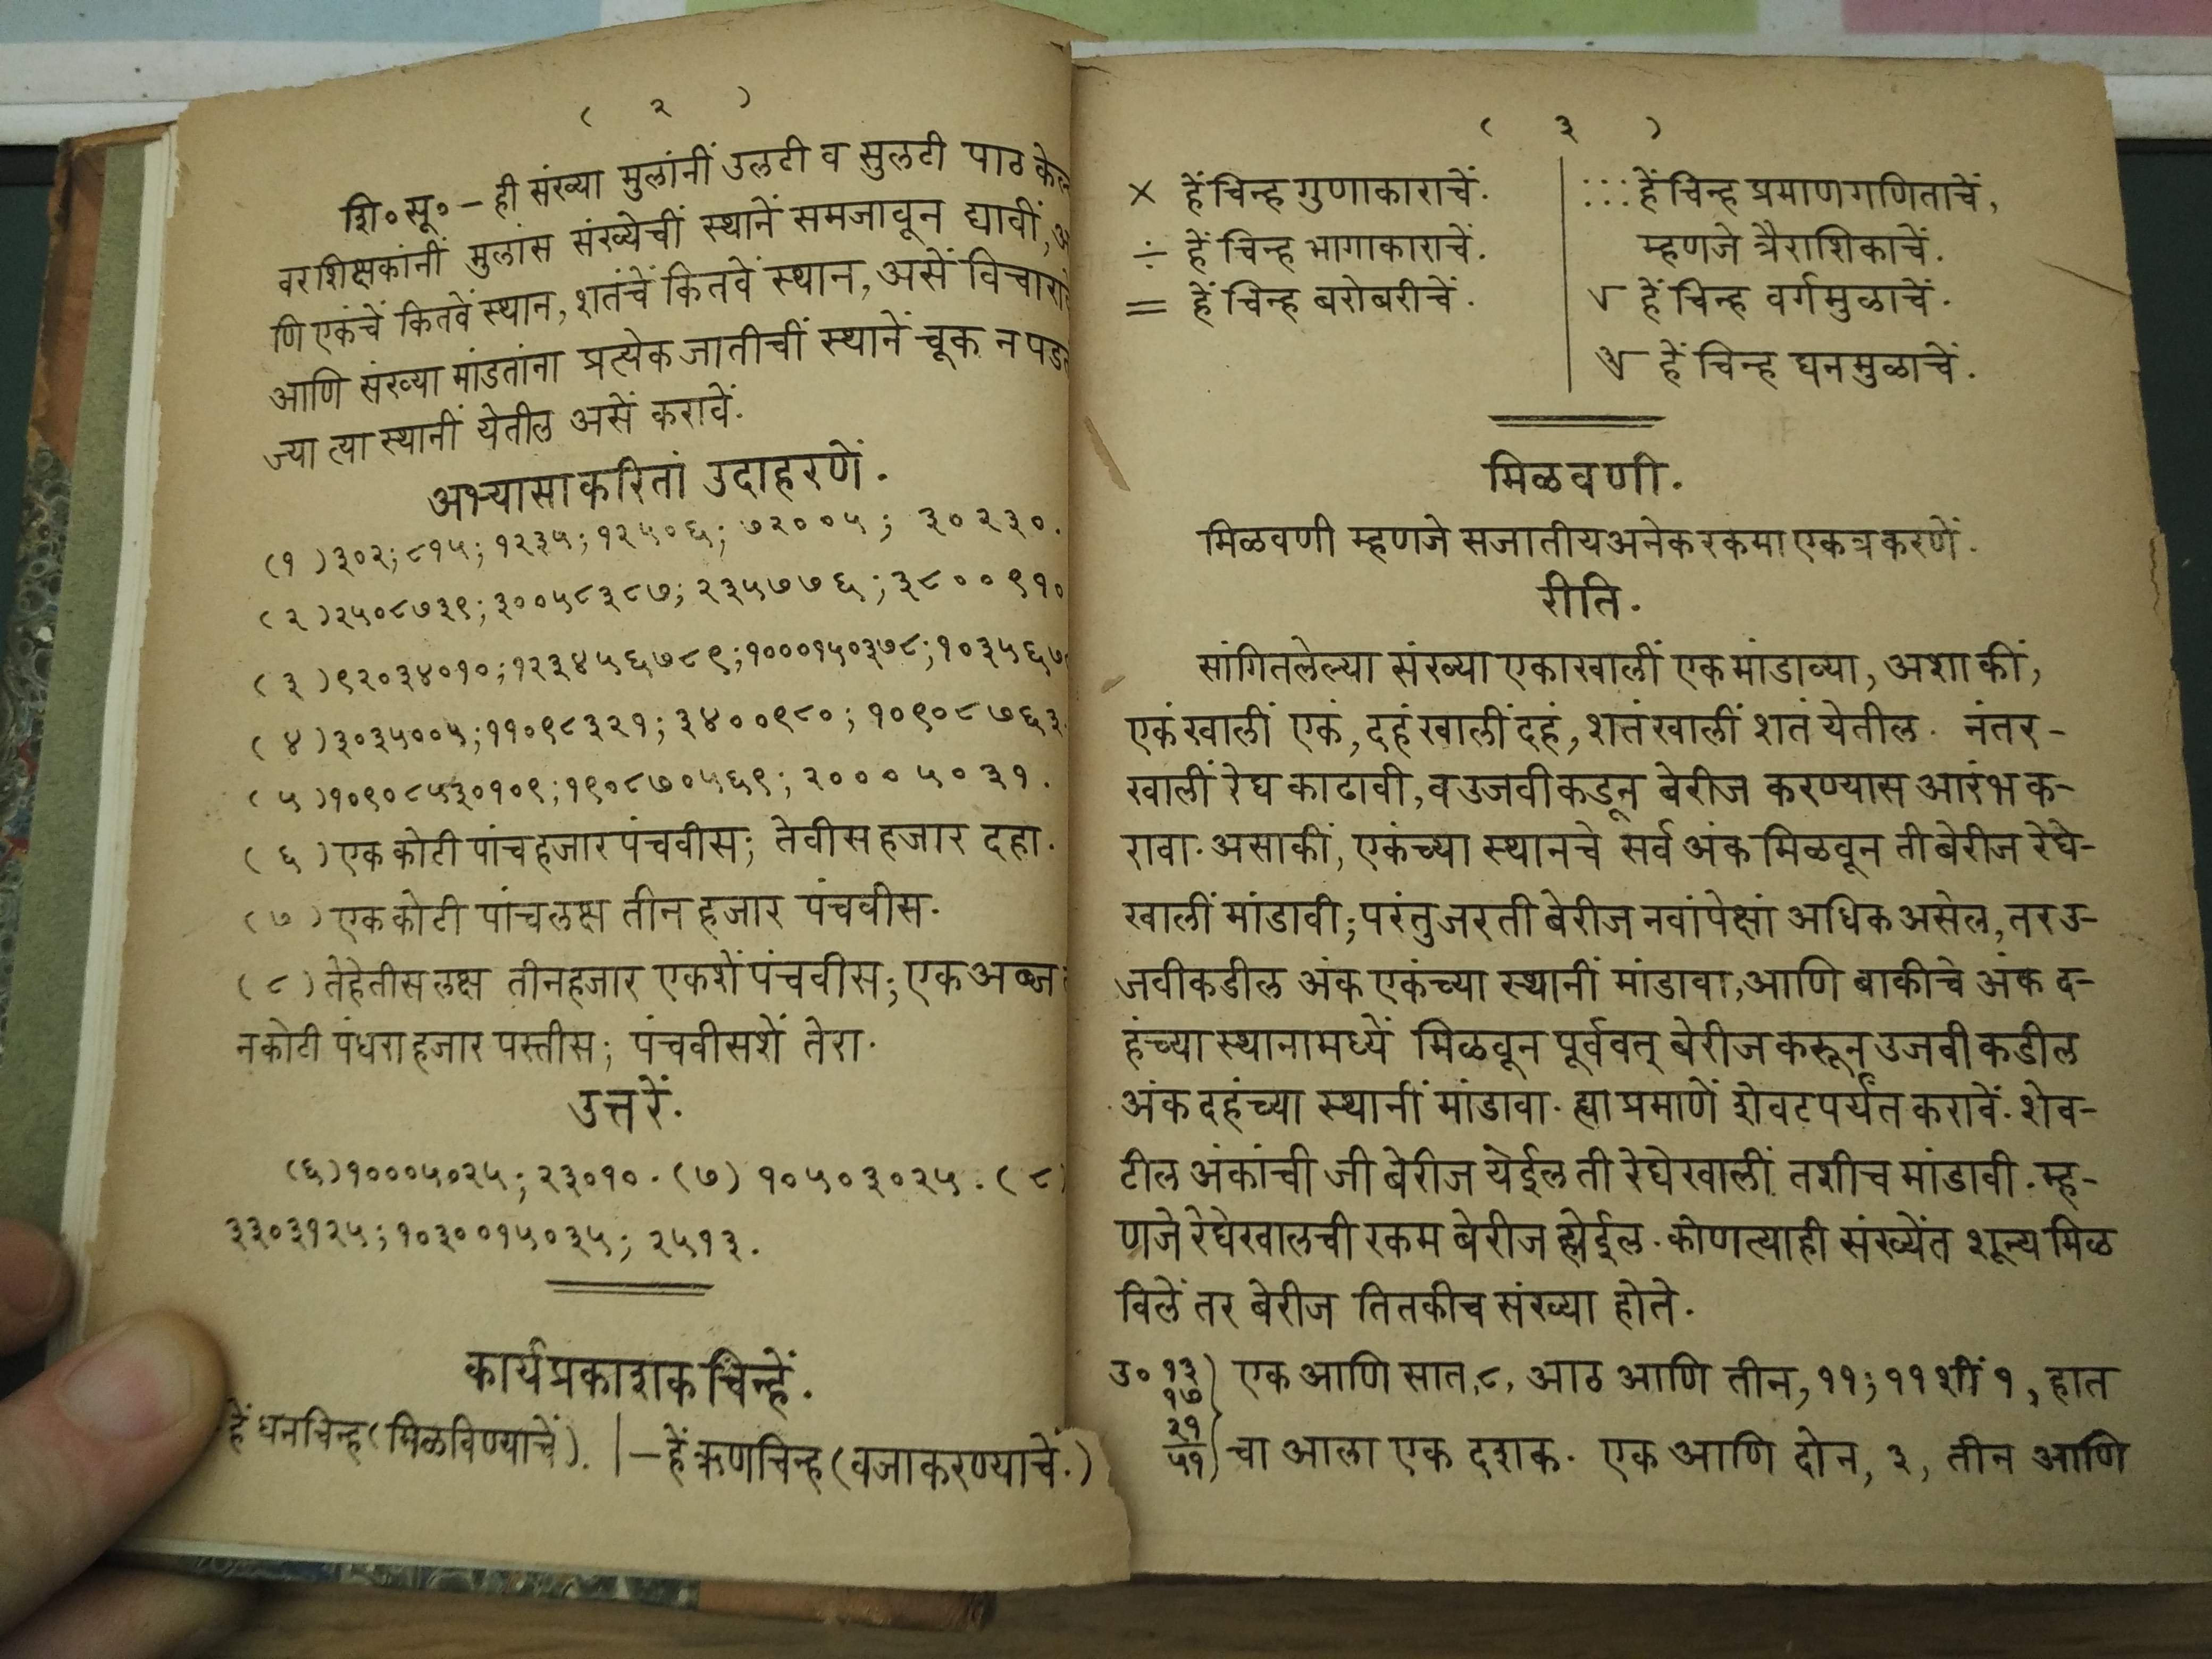 ( २ )
शि० सू० – ही संख्या मुलांनीं उलटी व सुलटी पाठ
वर शिक्षकांनीं मुलांस संख्येचीं स्थानें समजावून द्यावीं,
णि एकंचें कितवें स्थान, शतंचें कितवें स्थान, असें
आणि संख्या मांडतांना प्रत्येक जातीचीं स्थानें चूक न
ज्या त्या स्थानीं येतील असें करावें.
अभ्यासाकरितां उदाहरणें.
(१) ३०२; ८१५; १२३५; १२५०६; ७२००५; ३०२३०.
(२) २५०८७३९; ३००५८३८७; २३५७७६; ३८००९१०
(३) ९२०३४०१०; १२३४५६७८९; १०००१५०३७८; १०३५६७
(४) ३०३५००५; ११०९८३२१; ३४००९८०; १०९०८७६३
(५) १०९०८५३०१०९; १९०८७०५६९; २०००५०३१.
(६) एक कोटी पांच हजार पंचवीस; तेवीस हजार दहा.
(७) एक कोटी पांच लक्ष तीन हजार पंचवीस.
(८) तेहेतीस लक्ष तीन हजार एकशें पंचवीस; एक अब्ज
न कोटी पंधरा हजार पस्तीस; पंचवीसशें तेरा.
उत्तरें.
(६) १०००५०२५; २३०१०. (७) १०५०३०२५. (८)
३३०३१२५; १०३००१५०३५; २५१३.
कार्यप्रकाशक चिन्हें.
हें धनचिन्ह (मिळविण्याचें). | – हें ऋणचिन्ह (वजाकरण्याचें.)
( ३ )
× हें चिन्ह गुणाकाराचें.
÷ हें चिन्ह भागाकाराचें.
= हें चिन्ह बरोबरीचें.
: : : हें चिन्ह प्रमाणगणिताचें,
म्हणजे त्रैराशिकाचें.
√ हें चिन्ह वर्गमुळाचें.
∛ हें चिन्ह घनमुळाचें.
मिळवणी.
मिळवणी म्हणजे सजातीय अनेक रकमा एकत्र करणें.
रीति.
सांगितलेल्या संख्या एकाखालीं एक मांडाव्या, अशा कीं,
एकं खालीं एकं, दहं खालीं दहं, शतं खालीं शतं येतील. नंतर-
खालीं रेघ काढावी, व उजवीकडून बेरीज करण्यास आरंभ क-
रावा. असा कीं, एकंच्या स्थानचे सर्व अंक मिळवून ती बेरीज रेघे-
खालीं मांडावी; परंतु जर ती बेरीज नवांपेक्षां अधिक असेल, तर उ-
जवीकडील अंक एकंच्या स्थानीं मांडावा, आणि बाकीचे अंक द-
हंच्या स्थानामध्यें मिळवून पूर्ववत् बेरीज करून उजवीकडील
अंक दहंच्या स्थानीं मांडावा. ह्या प्रमाणें शेवटपर्यंत करावें. शेव-
टील अंकांची जी बेरीज येईल ती रेघेखालीं तशीच मांडावी. म्ह-
णजे रेघेखालची रकम बेरीज होईल. कोणत्याही संख्येंत शून्य मिळ
विलें तर बेरीज तितकीच संख्या होते.
उ० १३) एक आणि सात, ८, आठ आणि तीन, ११; ११ शीं १, हात
१७
२१
५१) चा आला एक दशक. एक आणि दोन, ३, तीन आणि